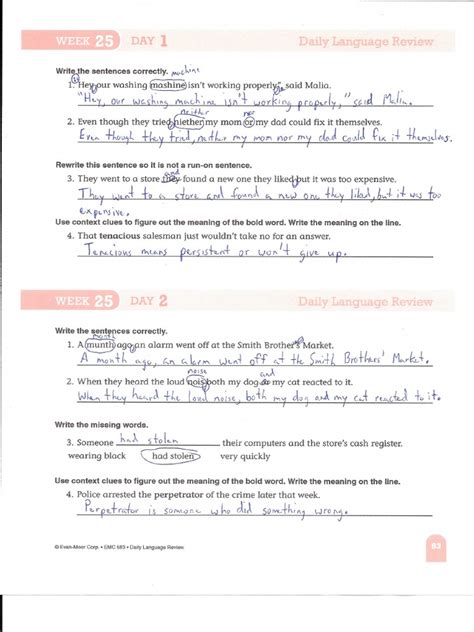 WEEK 25 DAY 1 Daily Language Review
Write the sentences correctly. machine
1. Hey our washing mashine isn't working properly," said Malia.
"Hey, our washing machine isn't working properly," said Malia.
neither nor
2. Even though they tried niether my mom or my dad could fix it themselves.
Even though they tried, neither my mom nor my dad could fix it themselves.
Rewrite this sentence so it is not a run-on sentence.
and
3. They went to a store they found a new one they liked but it was too expensive.
They went to a store and found a new one they liked, but it was too
expensive.
Use context clues to figure out the meaning of the bold word. Write the meaning on the line.
4. That tenacious salesman just wouldn't take no for an answer.
Tenacious means persistent or won't give up.
WEEK 25 DAY 2 Daily Language Review
Write the sentences correctly.
month
1. A munth ago an alarm went off at the Smith Brother's Market.
A month ago, an alarm went off at the Smith Brothers' Market.
noise and
2. When they heard the loud nois both my dog or my cat reacted to it.
When they heard the loud noise, both my dog and my cat reacted to it.
Write the missing words.
3. Someone had stolen their computers and the store's cash register.
wearing black had stolen very quickly
Use context clues to figure out the meaning of the bold word. Write the meaning on the line.
4. Police arrested the perpetrator of the crime later that week.
Perpetrator is someone who did something wrong.
© Evan-Moor Corp. • EMC 583 • Daily Language Review 83